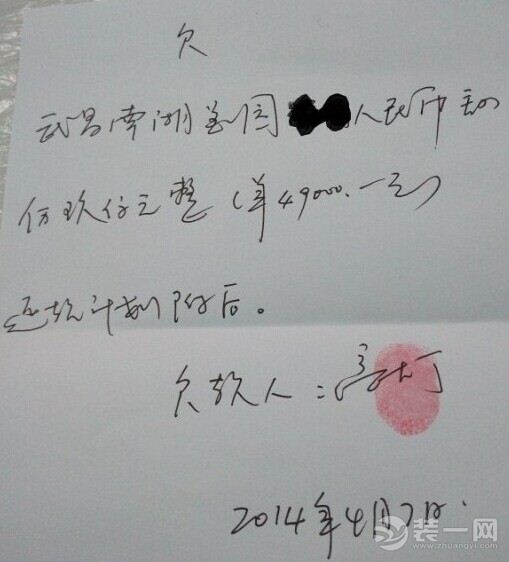 欠
武昌南湖花园 人民币肆
仟玖仟元整（￥49000.一元）
还款计划附后。
欠款人：
2014年4月7日.
装一网
www.zhuangyi.com